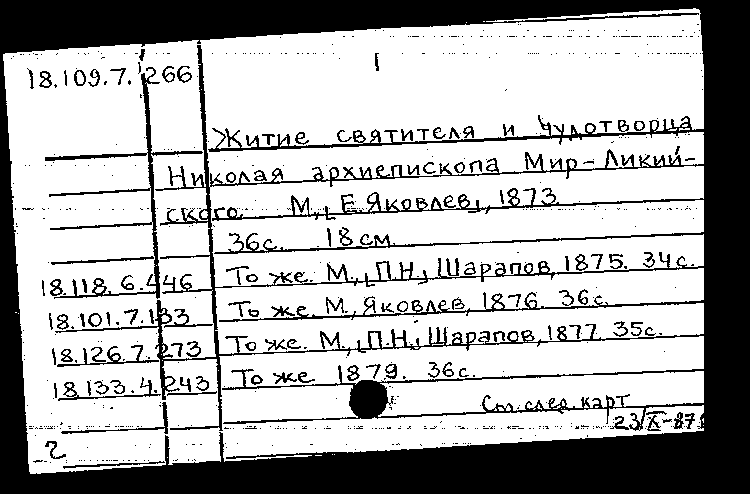 18.109.7.266
I
Житие святителя и чудотворца
Николая архиепископа Мир-Ликий-
ского. М., [Е. Яковлев], 1873
36с. 18 см.
18.118.6.446 То же. М., [П.Н.] Шарапов, 1875. 34с.
18.101.7.133 То же. М., Яковлев, 1876. 36с.
18.126.7.273 То же. М., [П.Н.] Шарапов, 1877. 35с.
18.133.4.243 То же. 1879. 36с.
См. след. карт
23/X-87
г